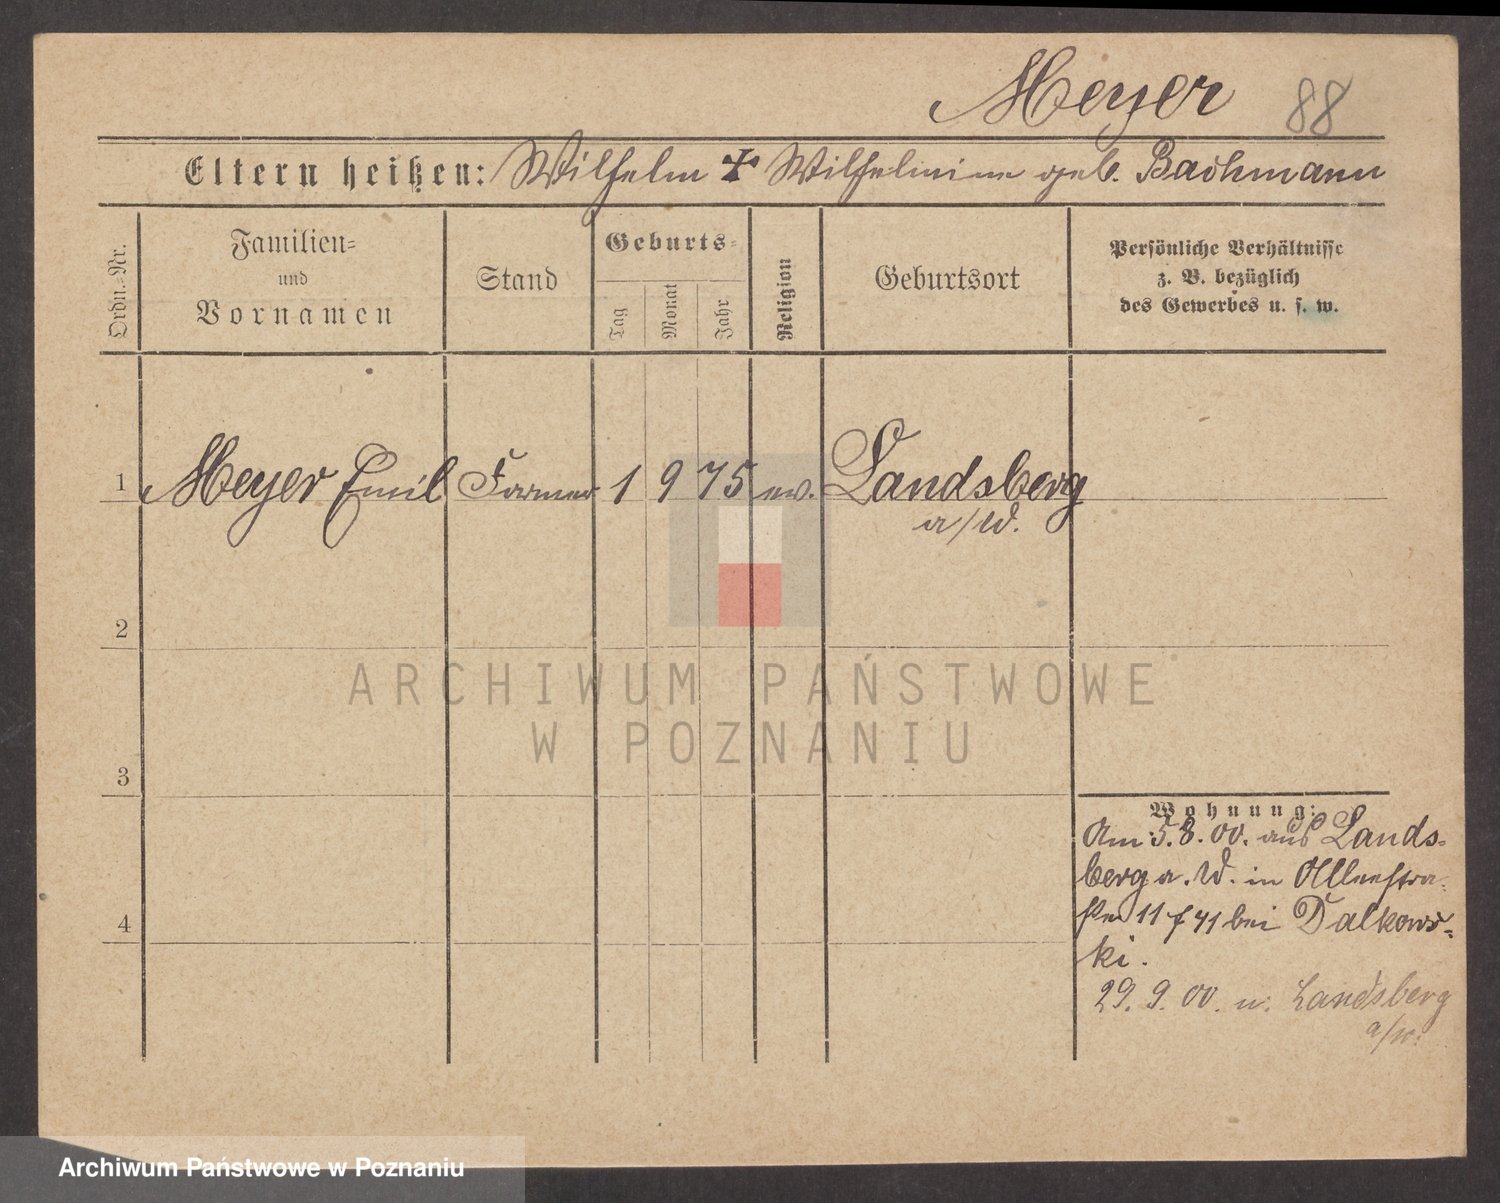 Meyer 88
Eltern heißen: Wilhelm + Wilhelmine geb. Bachmann
Ordn.-Nr.
Familien-
und
Vornamen
Stand
Geburts-
Tag
Monat
Jahr
Religion
Geburtsort
Persönliche Verhältnisse
z. B. bezüglich
des Gewerbes u. s. w.
1 Meyer Emil Former 1 9 75 ev. Landsberg
a/W.
2
3
4
Wohnung:
Am 5.8.00. aus Lands-
berg a. W. in Alleestra-
ße 11 bei Dalkows-
ki.
29. 9. 00. n. Landsberg
a/W.
ARCHIWUM PAŃSTWOWE
W POZNANIU
Archiwum Państwowe w Poznaniu